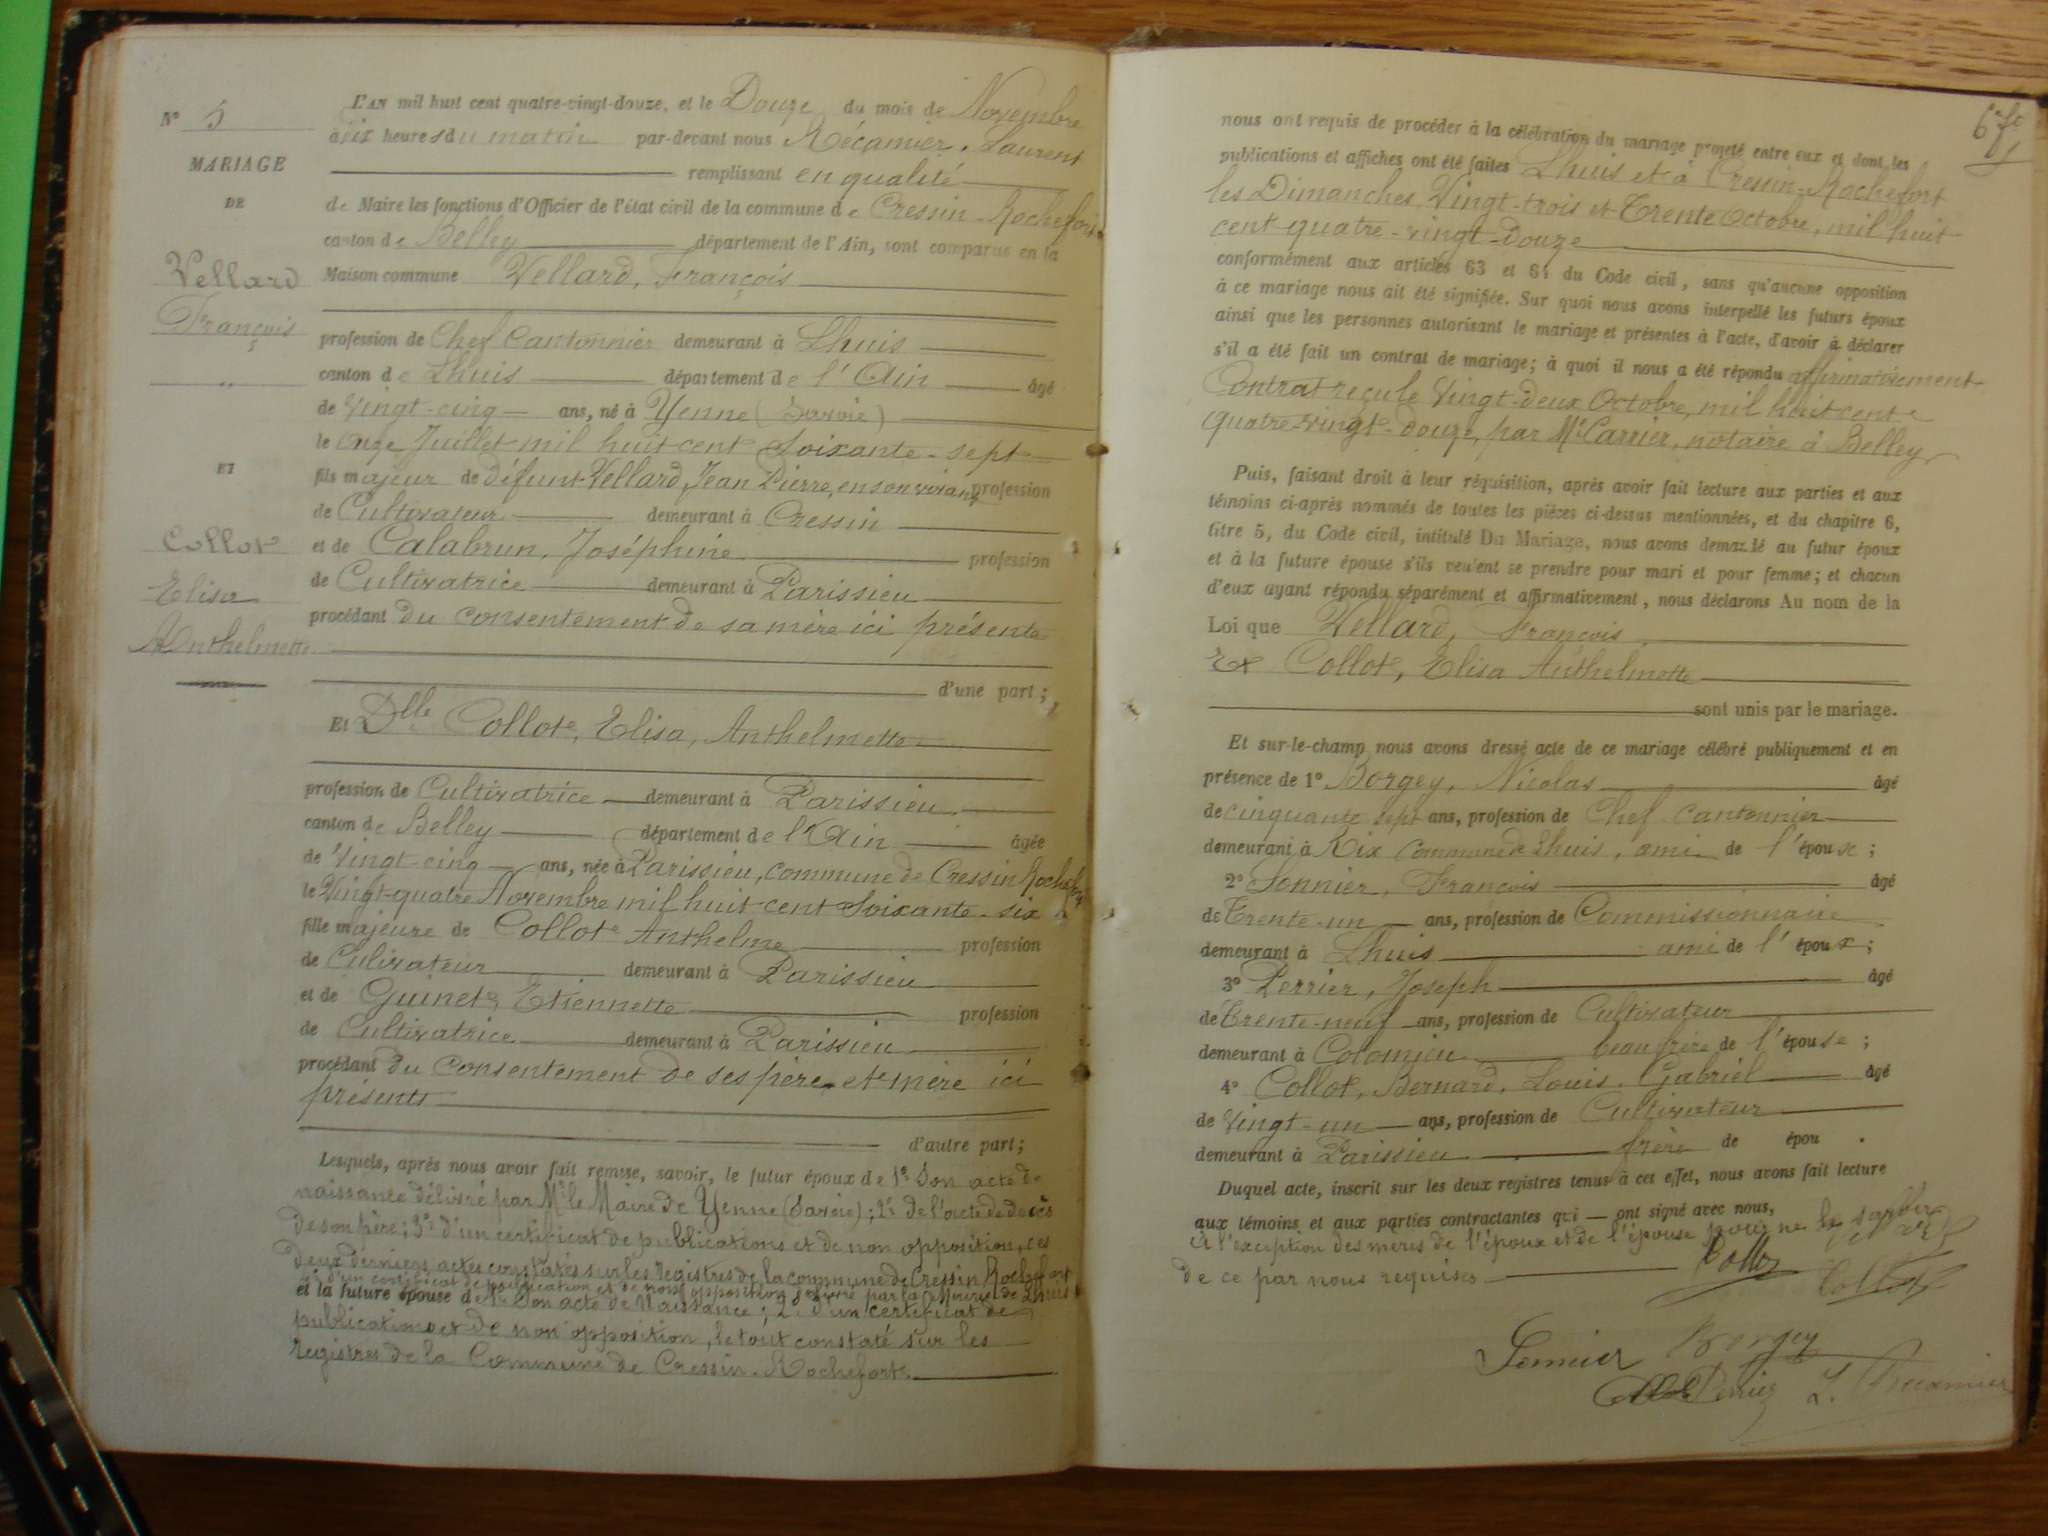 N° 5
MARIAGE
DE
Vellard
François
"
ET
Collot
Elisa
Anthelmette
L'AN mil huit cent quatre-vingt-douze, et le Douze du mois de Novembre
à dix heures du matin par-devant nous Récamier, Laurent
remplissant en qualité
de Maire les fonctions d'Officier de l'état civil de la commune de Cressin-Rochefort
canton de Belley département de l'Ain, sont comparus en la
Maison commune Vellard, François
profession de Chef Cantonnier demeurant à Lhuis
canton de Lhuis département de l'Ain âgé
de Vingt-cinq ans, né à Yenne (Savoie)
le onze Juillet mil huit cent Soixante-sept
fils majeur de défunt Vellard, Jean Pierre, en son vivant profession
de Cultivateur demeurant à Cressin
et de Calabrun, Joséphine profession
de Cultivatrice demeurant à Parissieu
procédant du consentement de sa mère ici présente
d'une part;
Et Dlle Collot, Elisa, Anthelmette
profession de Cultivatrice demeurant à Parissieu
canton de Belley département de l'Ain âgée
de Vingt-cinq ans, née à Parissieu, commune de Cressin Rochefort
le Vingt-quatre Novembre mil huit cent Soixante-six
fille majeure de Collot Anthelme profession
de Culivateur demeurant à Parissieu
et de Guinet, Etiennette profession
de Cultivatrice demeurant à Parissieu
procédant du consentement de ses père et mère ici
présents
d'autre part;
Lesquels, après nous avoir fait remise, savoir, le futur époux de 1° Son acte de
naissance délivré par Mr le Maire de Yenne (Savoie); 2° de l'acte de décès
de son père; 3° d'un certificat de publications et de non opposition, ces
deux derniers actes constatés sur les registres de la commune de Cressin Rochefort
4° d'un certificat de publication et de non opposition délivré par la Mairie de Lhuis
et la future épouse de 1° Son acte de Naissance; 2° d'un certificat de
publications et de non opposition, le tout constaté sur les
registres de la Commune de Cressin-Rochefort.
nous ont requis de procéder à la célébration du mariage projeté entre eux et dont les
publications et affiches ont été faites Lhuis et à Cressin-Rochefort
les Dimanches Vingt-trois et Trente Octobre, mil huit
cent quatre-vingt-douze
conformément aux articles 63 et 64 du Code civil, sans qu'aucune opposition
à ce mariage nous ait été signifiée. Sur quoi nous avons interpellé les futurs époux
ainsi que les personnes autorisant le mariage et présentes à l'acte, d'avoir à déclarer
s'il a été fait un contrat de mariage; à quoi il nous a été répondu affirmativement
Contrat reçu le Vingt-deux Octobre, mil huit cent
quatre-vingt-douze, par Me Carrier, notaire à Belley
Puis, faisant droit à leur réquisition, après avoir fait lecture aux parties et aux
témoins ci-après nommés de toutes les pièces ci-dessus mentionnées, et du chapitre 6,
titre 5, du Code civil, intitulé Du Mariage, nous avons demandé au futur époux
et à la future épouse s'ils veulent se prendre pour mari et pour femme; et chacun
d'eux ayant répondu séparément et affirmativement, nous déclarons Au nom de la
Loi que Vellard, François
Et Collot, Elisa Anthelmette
sont unis par le mariage.
Et sur-le-champ nous avons dressé acte de ce mariage célébré publiquement et en
présence de 1° Borgey, Nicolas âgé
de cinquante sept ans, profession de Chef cantonnier
demeurant à Rix commune de Lhuis, ami de l'épouse;
2° Sonnier, François âgé
de Trente-un ans, profession de Commissionnaire
demeurant à Lhuis ami de l'époux;
3° Perrier, Joseph âgé
de Trente-neuf ans, profession de Cultivateur
demeurant à Colomieu beau frère de l'épouse;
4° Collot, Bernard, Louis, Gabriel âgé
de Vingt-un ans, profession de Cultivateur
demeurant à Parissieu frère de épou .
Duquel acte, inscrit sur les deux registres tenus à cet effet, nous avons fait lecture
aux témoins et aux parties contractantes qui — ont signé avec nous,
à l'exception des mères de l'époux et de l'épouse pour ne le savoir
de ce par nous requises
Vellard
Collot
Collot
Sonnier Borgey
Perrier L. Recamier